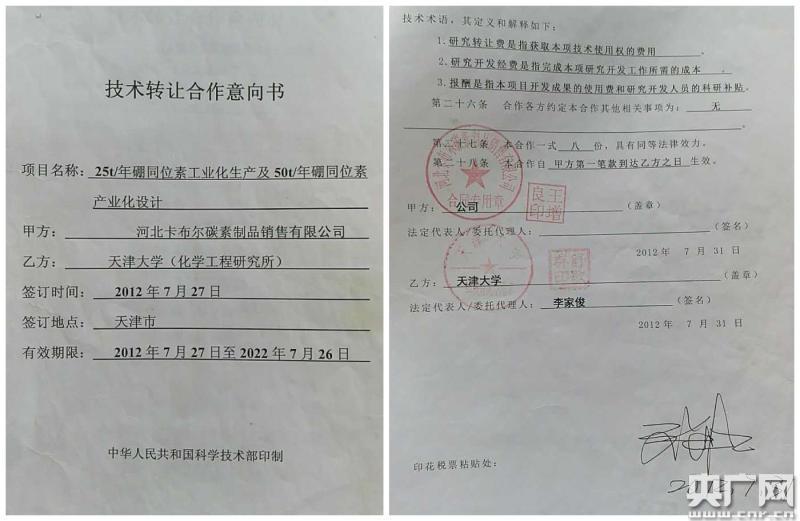 技术转让合作意向书
项目名称：25t/年硼同位素工业化生产及50t/年硼同位素
产业化设计
甲方：河北卡布尔碳素制品销售有限公司
乙方：天津大学（化学工程研究所）
签订时间：2012年7月27日
签订地点：天津市
有效期限：2012年7月27日至2022年7月26日
中华人民共和国科学技术部印制
技术术语，其定义和解释如下：
1.研究转让费是指获取本项技术使用权的费用。
2.研究开发经费是指完成本项研究开发工作所需的成本。
3.报酬是指本项目开发成果的使用费和研究开发人员的科研补贴。
第二十六条 合作各方约定本合作其他相关事项为：无
第二十七条 本合作一式八份，具有同等法律效力。
第二十八条 本合作自甲方第一笔款到达乙方之日生效。
合同专用章
王增良印
甲方：公司（盖章）
法定代表人/委托代理人：（签名）
2012年7月31日
乙方：天津大学（盖章）
法定代表人/委托代理人：李家俊（签名）
2012年7月31日
印花税票粘贴处：
央广网
www.cnr.cn